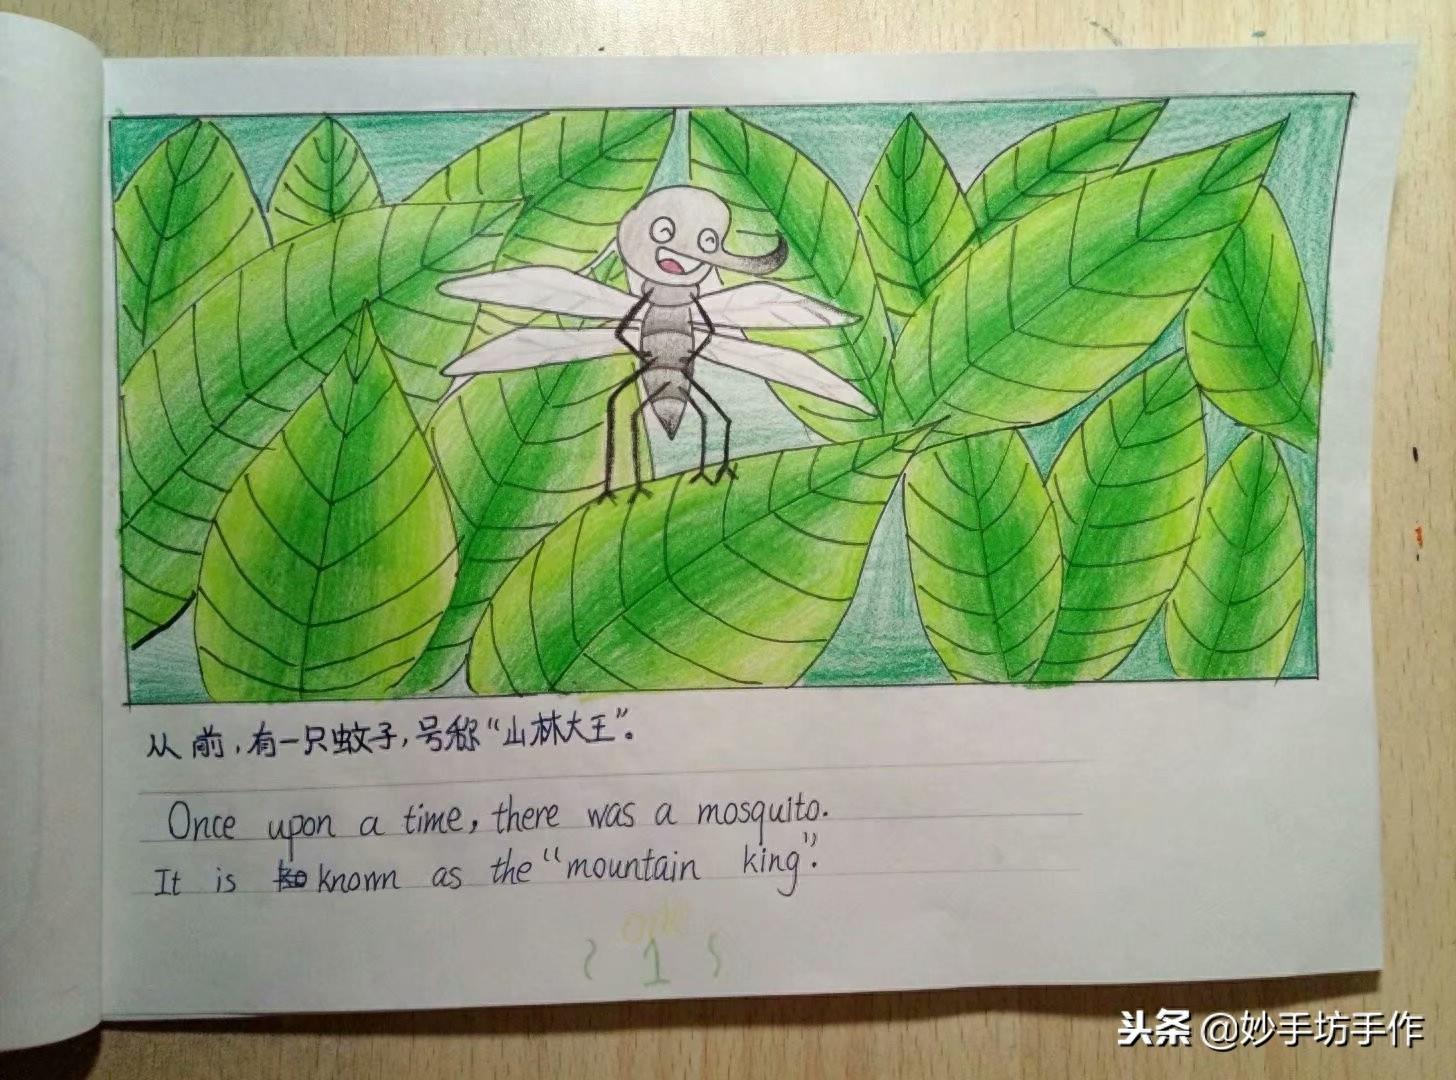 从前，有一只蚊子，号称“山林大王”。
Once upon a time, there was a mosquito.
It is known as the "mountain king".
one
1
头条 @妙手坊手作